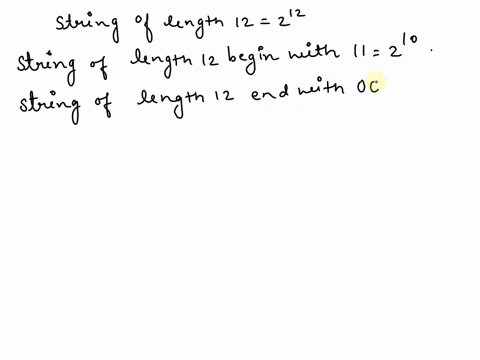 string of length 12 = 2^12
string of length 12 begin with 11 = 2^10.
string of length 12 end with 00